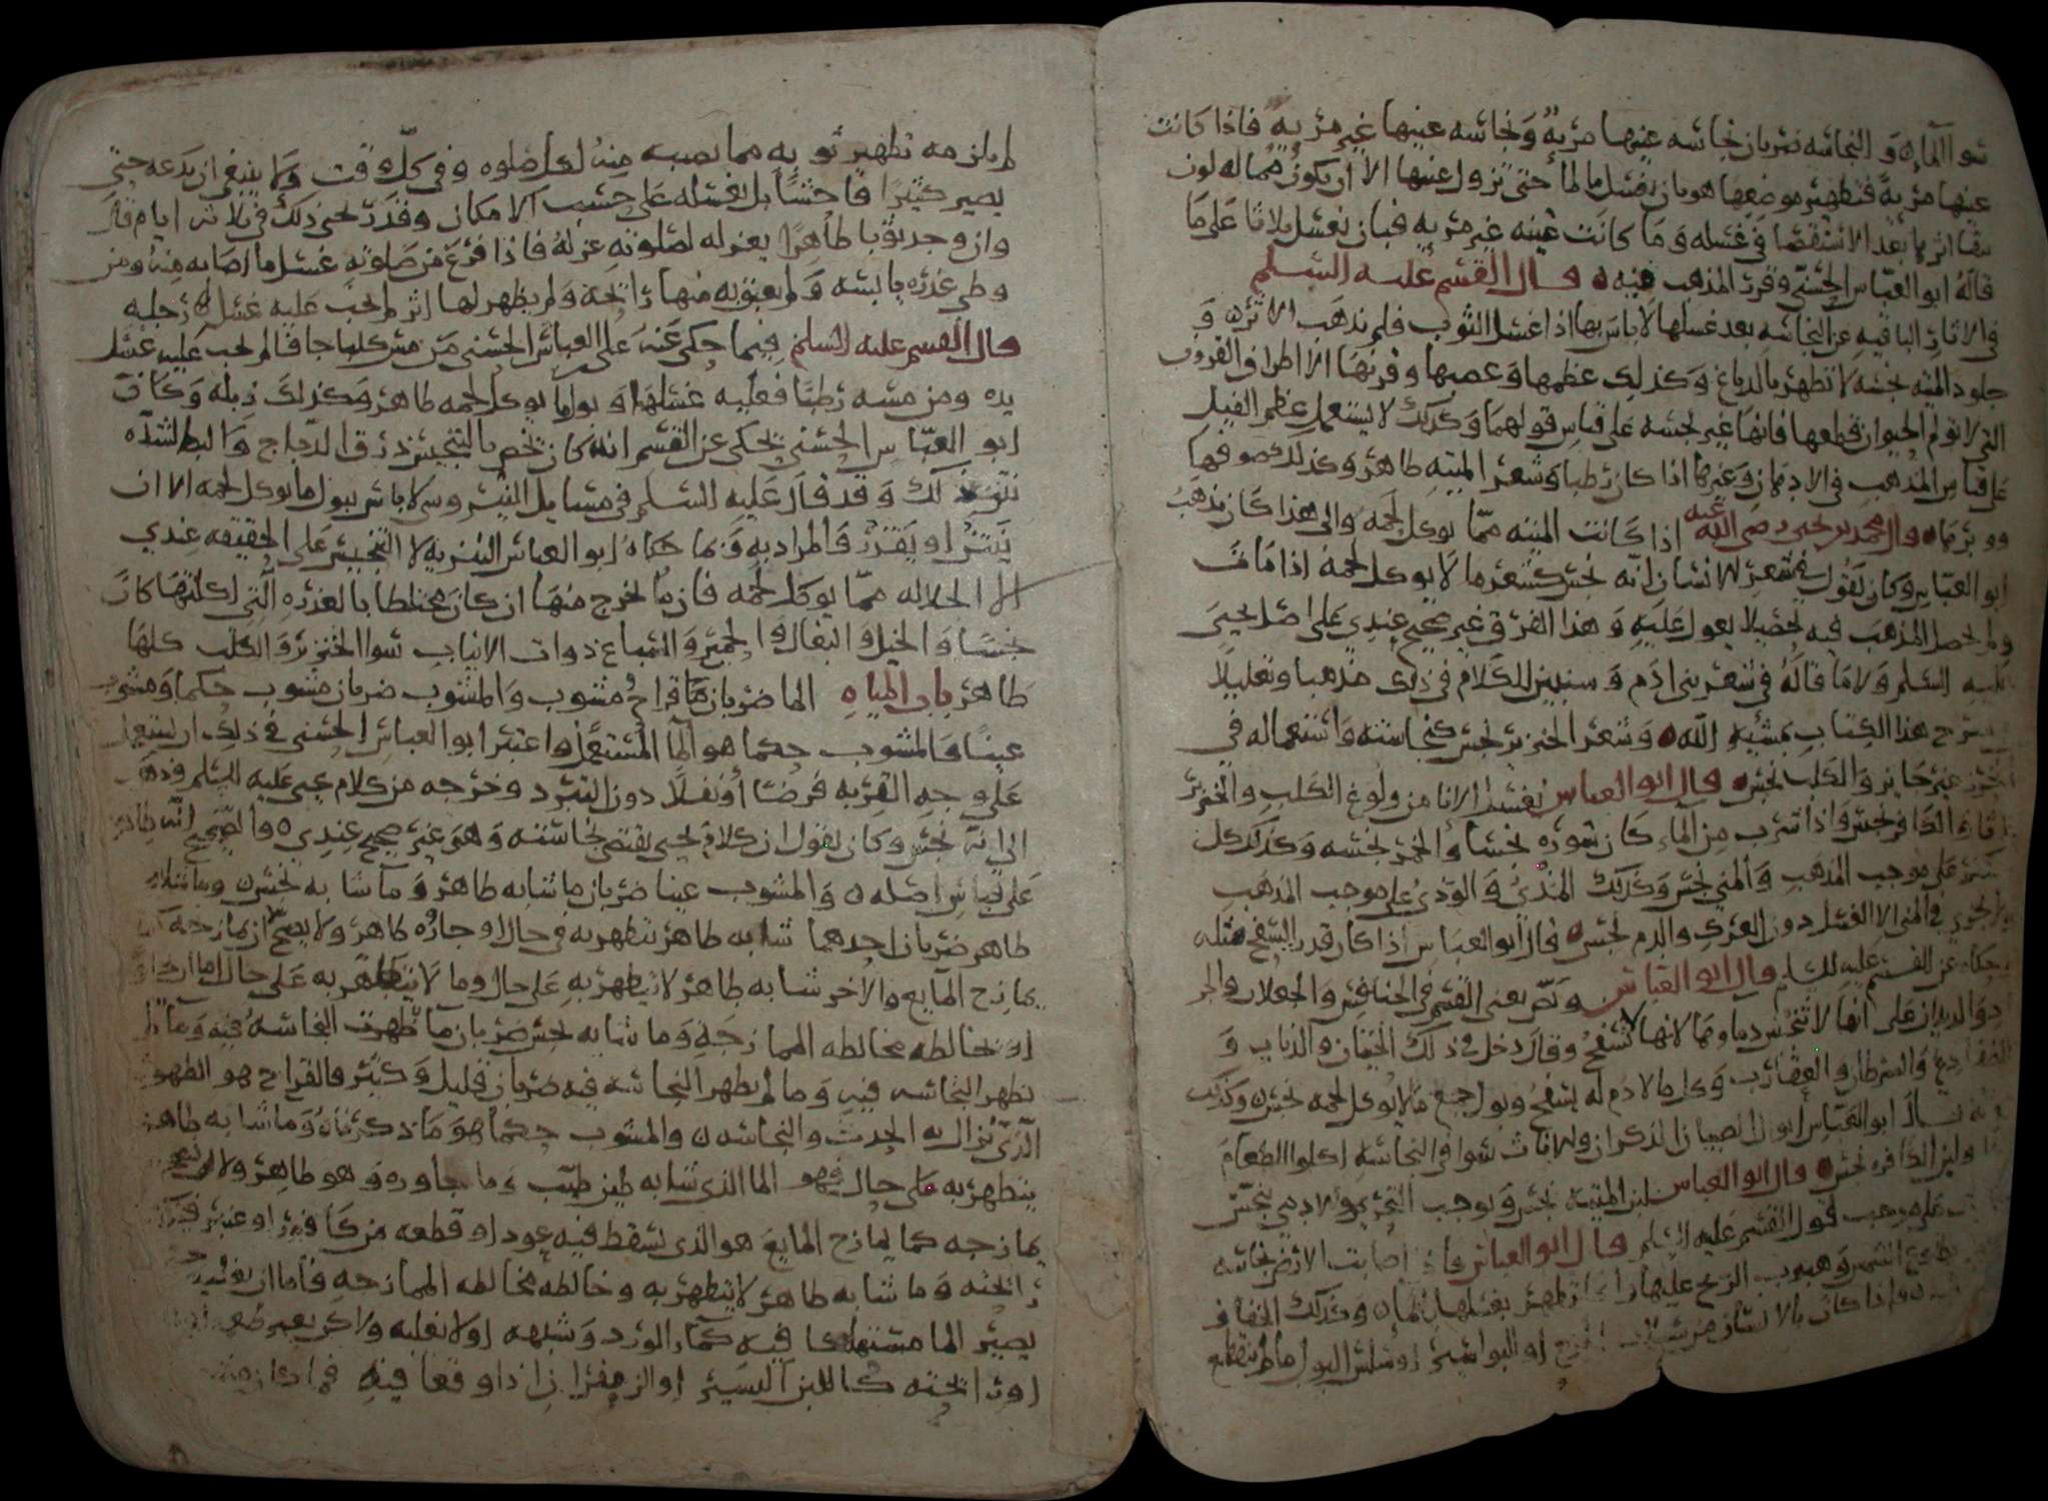 سوا الماء والنجاسه ضربان نجاسه عينها مرئية ونجاسه عينها غير مرئية فاذا كانت
عينها مرئية فتطهير موضعها هو بان يغسل بالماء حتى تزول عينها الا ان يكون مما له لون
يبقا اثره بعد الاستقصا في غسله وما كانت عينه غير مرئيه فبان يغسل ثلاثا على ما
قاله ابو العباس الحسني وقرر المذهب فيه قال القسم عليه السلم
في الاثار الباقيه عن النجاسه بعد غسلها لا باس بها اذا غسل الثوب فلم يذهب الاثر و
جلود الميته نجسه لا تطهر بالدباغ وكذلك عظمها وعصبها وقرنها الا اطراف القرون
التي لا تولم الحيوان قطعها فانها غير نجسه على قياس قولهما وكذلك لا يستعمل عظم الفيل
على قياس المذهب في الادهان وغيرها اذا كان رطبا وشعر الميته طاهر وكذلك صوفها
ووبرها قال محمد بن يحيى رضي الله عنه اذا كانت الميته مما يوكل لحمه والى هذا كان يذهب
ابو العباس وكان يقول في شعر الانسان انه نجس كشعر ما لا يوكل لحمه اذا مات
ولم يحصل المذهب فيه تحصيلا يعول عليه وهذا الفرق غير صحيح عندي على اصل يحيى
عليه السلم ولا ما قاله في شعر بني ادم وسنبين الكلام في ذلك مذهبا وتعليلا
شرح هذا الكتاب بمشيه الله وشعر الخنزير نجس كنجاسته واستعماله في
الخرز غير جايز والكلب نجس قال ابو العباس يغسل الانا من ولوغ الكلب والخنزير
الكافر نجس واذا شرب من الماء كان سوره نجسا والخمر نجسه وكذلك كل
مسكر على موجب المذهب والمني نجس وكذلك المذي والودي على موجب المذهب
ولا يجزي في المني الا الغسل دون الفرك والدم نجس قال ابو العباس اذا كان قدر السفح مثله
حكاه عن القسم عليه السلم قال ابو العباس ونص يعني القسم في الخنافس والجعلان والجر
والديدان على انها لا تنجس دماوها لانها لا تسفح وقال دخل في ذلك الخيفان والذباب و
الضفادع والسرطان والعقارب وكل ما لا دم له يسفح وبول جميع ما لا يوكل لحمه نجس وكذلك
قال ابو العباس ابوال الصبيان الذكران والاناث سوا في النجاسه اكلوا الطعام
ولبن الكافره نجس قال ابو العباس لبن الميتة نجس ويوجب التحريم والادمي ينجس
على موجب قول القسم عليه السلم قال ابو العباس فاذا اصابت الارض نجاسه
الشمس وهبوب الريح عليها تطهر بغسلها بالماء وكذلك الخفاف
واذا كان بالانسان او البواسير او سلس البول ما لم ينقطع
لم يلزمه تطهير ثوبه مما يصيبه منه لكل صلوه وفي كل وقت ولا ينبغي ان يدعه حتى
يصير كثيرا فاحشا بل يغسله على حسب الامكان وقد حد يحيى ذلك في ثلاثه ايام قال
وان وجد ثوبا طاهرا يعزله لصلوته عزله فاذا فرغ من صلوته غسل ما اصابه منه ومن
وطي عذره يابسه ولم يعبق به منها رائحة ولم يظهر لها اثر لم يجب عليه غسل رجله
قال القسم عليه السلم فيما حكى عنه علي العباس الحسني من مس كلبا جافا لم يجب عليه غسل
يده ومن مسه رطبا فعليه غسلها وبول ما يوكل لحمه طاهر وكذلك زبله وكان
ابو العباس الحسني يحكي عن القسم انه كان يخص بالتنجيس ذرق الدجاج والبط لشده
نتن ذلك وقد قال عليه السلم في مسايل النيروسي لا باس ببول ما يوكل لحمه الا ان
ينتن او يقذر فالمراد به وبما حكاه ابو العباس التنزيه لا التنجيس على الحقيقه عندي
الا الجلاله مما يوكل لحمه فان ما يخرج منها ان كان مختلطا بالعذره التي اكلتها كان
نجسا والخيل والبغال والحمير والسباع ذوات الانياب سوا الخنزير والكلب كلها
طاهر باب المياه الما ضربان قراح ومشوب والمشوب ضربان مشوب حكما ومشوب
عينا فالمشوب حكما هو الما المستعمل واعتبر ابو العباس الحسني في ذلك ان يستعمل
على وجه القربه فرضا او نفلا دون التبرد وخرجه من كلام يحيى عليه السلم وذهب
الى انه نجس وكان يقول ان كلام يحيى يقتضي نجاسته وهو غير صحيح عندي والصحيح انه طاهر
على قياس اصله والمشوب عينا ضربان ما شابه طاهر وما شابه نجس وما شابه
طاهر ضربان احدهما شابه طاهر يتطهر به في حال او جاوره طاهر ولا يصح ان يمازجه كما
يمازج المايع والاخر شابه طاهر لا يتطهر به على حال وما لا يتطهر به على حال اما ان
او يخالطه مخالطه الممازجه وما شابه نجس ضربان ما ظهرت النجاسه فيه وما لم
تظهر النجاسه فيه وما لم يظهر النجاسه فيه ضربان قليل وكثير فالقراح هو الطهور
الذي يزال به الحدث والنجاسه والمشوب حكما هو ما ذكرناه وما شابه طاهر
يتطهر به على حال فهو الما الذي شابه طين طيب وما يجاوره وهو طاهر ولا
يمازجه كما يمازج المايع هو الذي يسقط فيه عود او قطعه من كافور او عنبر
رائحته وما شابه طاهر لا يتطهر به وخالطه مخالطه الممازجه فاما ان
يصير الما مستهلكا فيه كماء الورد وشبهه او لا يغلبه ولكن يغير طعمه
او رائحته كاللبن اليسير او الزعفران اذا وقعا فيه